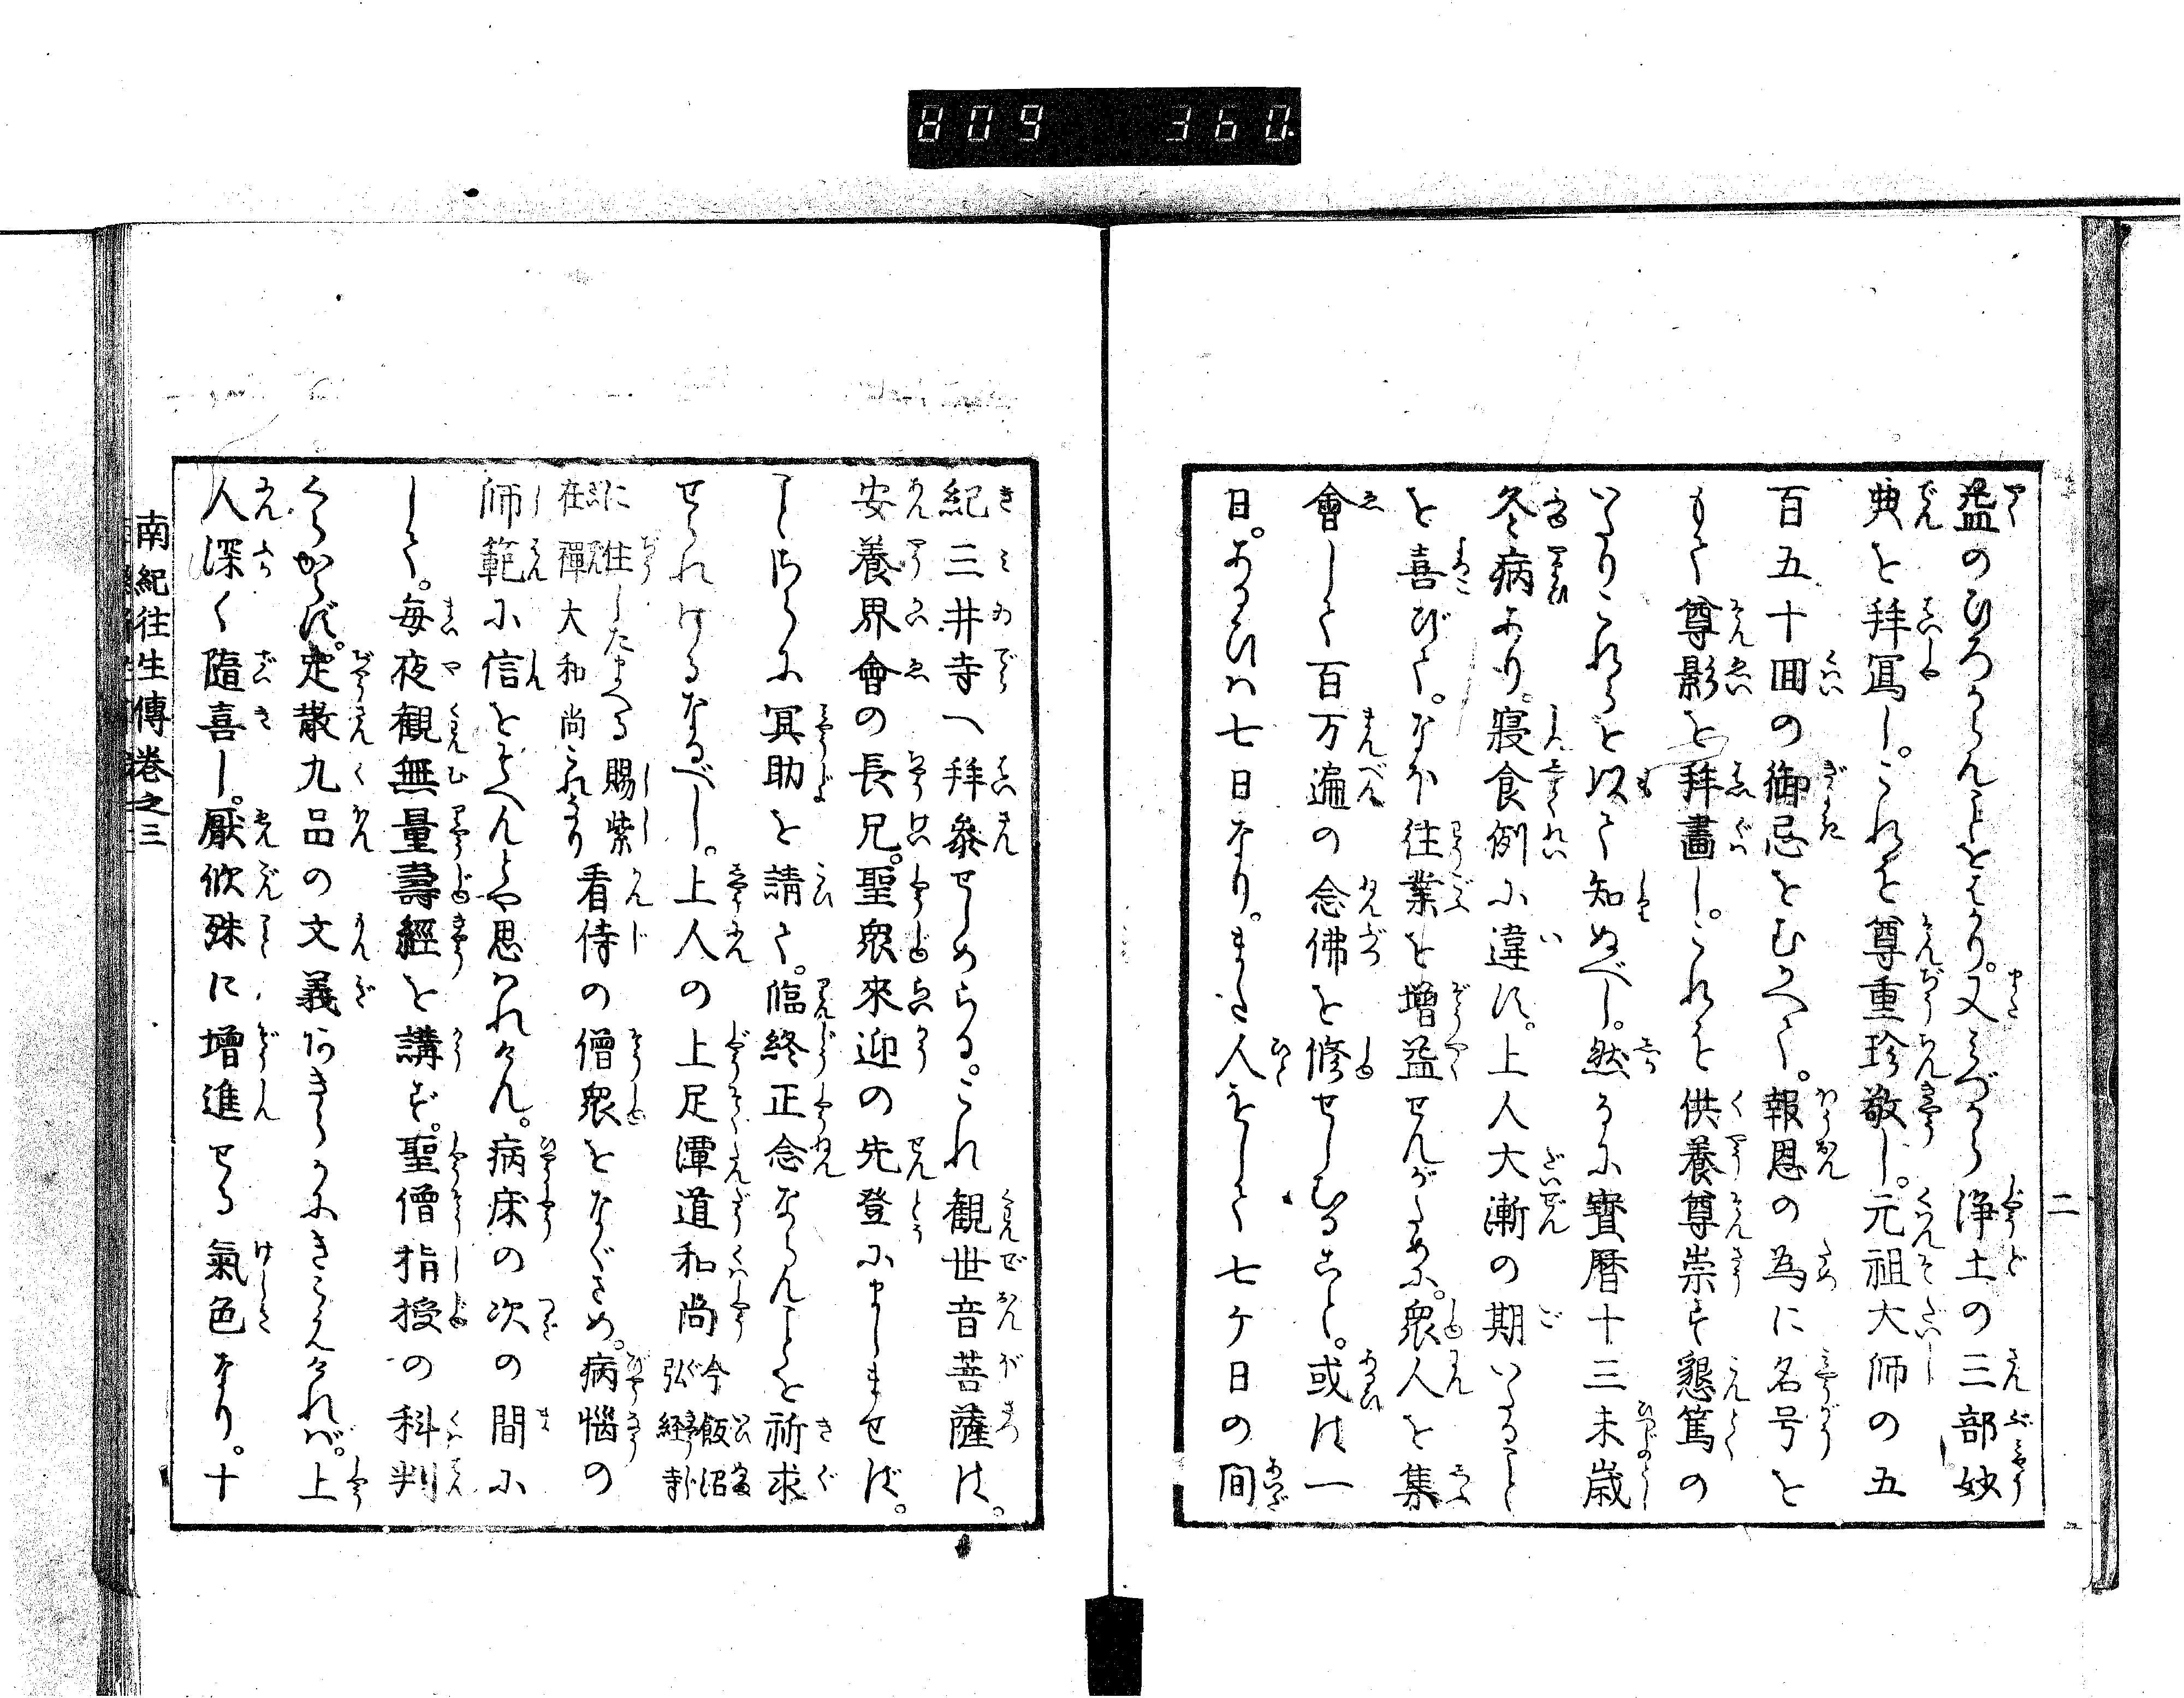 809 360
二
益のひろからんことをはかり。又みづから浄土の三部妙
典を拝冩し。これを尊重珍敬し。元祖大師の五
百五十回の御忌をむかへて。報恩の為に名号を
もて尊影を拝畫し。これを供養尊崇す懇篤の
いたりこれらを以て知ぬべし。然るに寶暦十三未歳
冬病あり。寝食例に違ず。上人大漸の期いたること
を喜びて。なを往業を増益せんがために。衆人を集
會して百万遍の念佛を修せしむること。或は一
日。あるひは七日なり。また人をして七ケ日の間
紀三井寺へ拝參せしめらる。これ観世音菩薩は。
安養界會の長兄。聖衆來迎の先登にましませば。
ことさらに冥助を請て。臨終正念ならんことを祈求
せられけるなるべし。上人の上足潭道和尚今飯沼弘経寺
に住したまへる賜紫在禪大和尚これなり看侍の僧衆をなぐさめ。病惱の
師範に信をそへんとや思はれけん。病床の次の間に
して。毎夜観無量壽經を講ず。聖僧指授の科判
くらからず。定散九品の文義あきらかにきこえければ。上
人深く隨喜し。厭欣殊に増進せる氣色なり。十
南紀往生傳巻之三